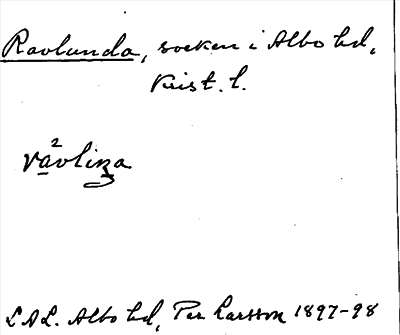 Ravlunda, socken i Albo hd,
Krist. l.
ra²vliṉa
L A L. Albo hd, Per Larsson 1897-98